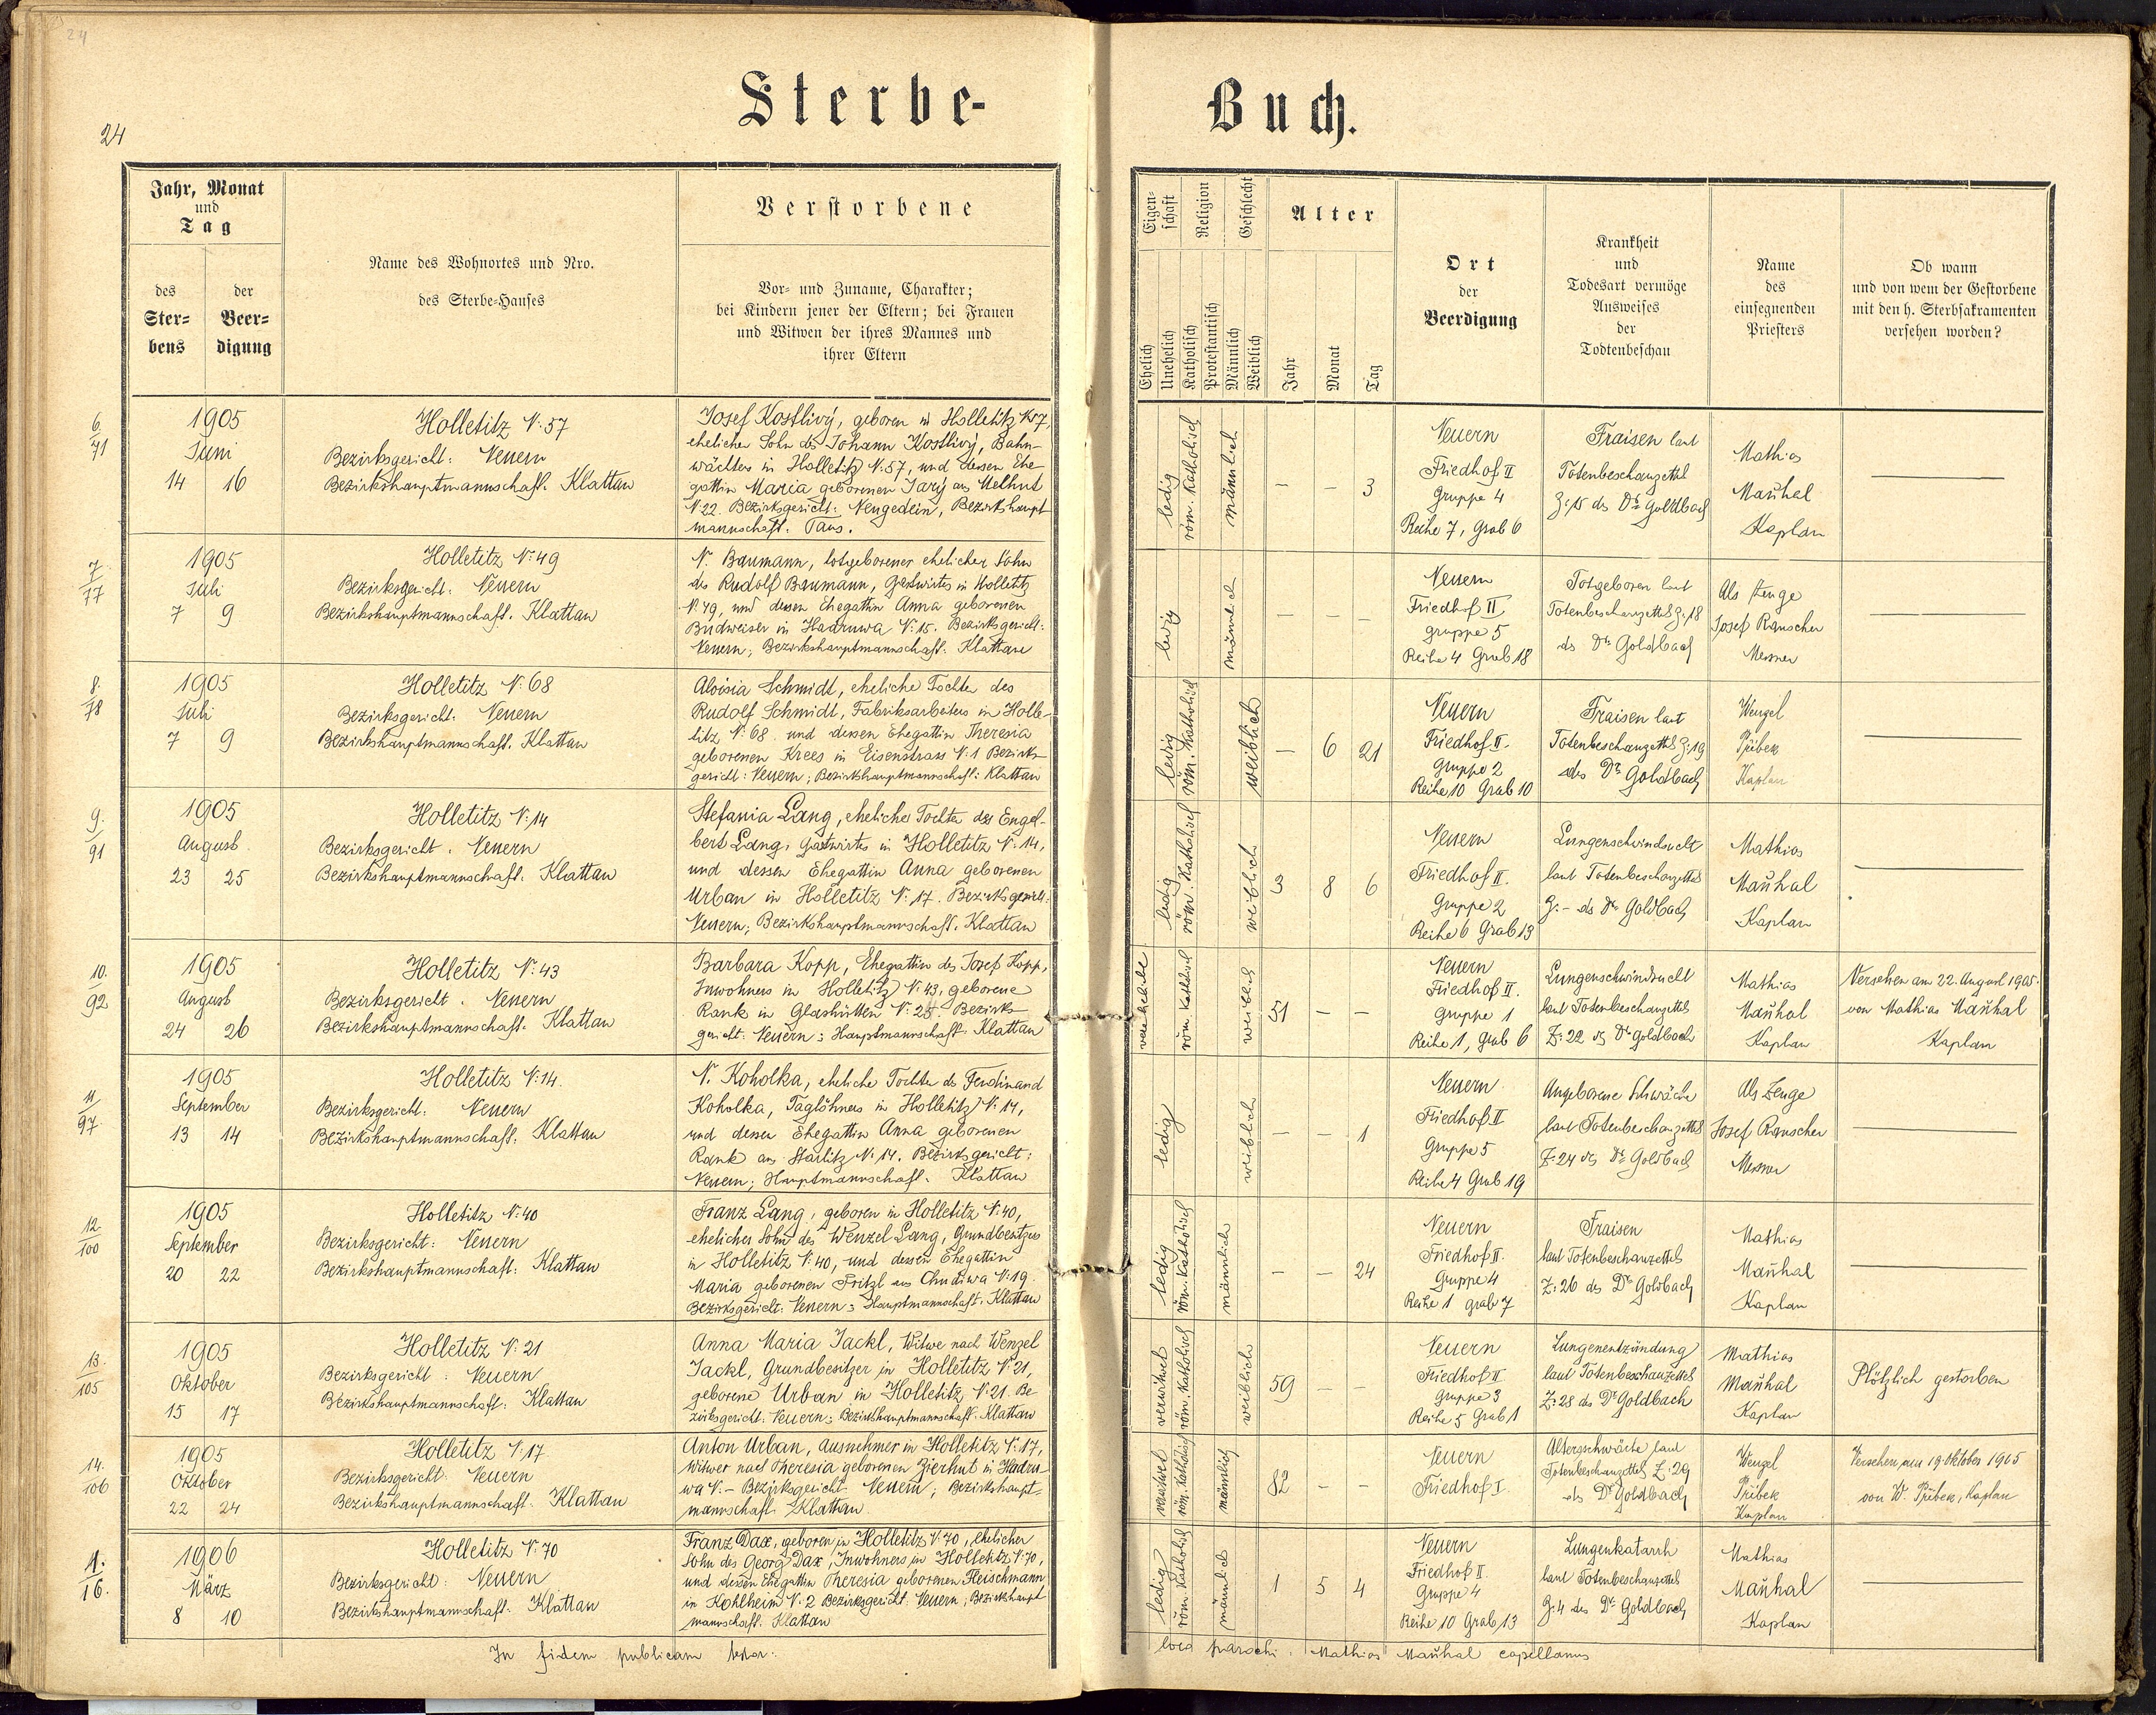 24
24
Sterbe-
Buch.
Jahr, Monat
und
Tag
des
Ster=
bens
der
Beer=
digung
Name des Wohnortes und Nro.
des Sterbe-Hauses
Verstorbene
Vor- und Zuname, Charakter;
bei Kindern jener der Eltern; bei Frauen
und Witwen der ihres Mannes und
ihrer Eltern
Eigen=
schaft
Religion
Geschlecht
Alter
Ehelich
Unehelich
Katholisch
Protestantisch
Männlich
Weiblich
Jahr
Monat
Tag
Ort
der
Beerdigung
Krankheit
und
Todesart vermöge
Ausweises
der
Todtenbeschau
Name
des
einsegnenden
Priesters
Ob wann
und von wem der Gestorbene
mit den h. Sterbsakramenten
versehen worden?
6.
71
1905
Juni
14 16
Holletitz N: 57
Bezirksgericht: Neuern
Bezirkshauptmannschaft. Klattau
Josef Kostlivý, geboren in Holletitz N: 57,
ehelicher Sohn des Johann Kostlivý, Bahn-
wächters in Holletitz N: 57, und dessen Ehe
gattin Maria geborenen Jarý aus Melhut
N: 22. Bezirksgericht: Neugedein, Bezirkshaupt
mannschaft: Taus.
ledig
röm. Katholisch
männlich
– – 3
Neuern
Friedhof II
Gruppe 4
Reihe 7, Grab 6
Fraisen laut
Totenbeschauzettel
Z: 15 des Dr Goldbach
Mathias
Mauhal
Kaplan
7.
77
1905
Juli
7 9
Holletitz N: 49
Bezirksgericht: Neuern
Bezirkshauptmannschaft. Klattau
N. Baumann, totgeborener ehelicher Sohn
des Rudolf Baumann, Gastwirtes in Holletitz
N: 49, und dessen Ehegattin Anna geborenen
Budweiser in Hadruwa N: 15. Bezirksgericht:
Neuern; Bezirkshauptmannschaft: Klattau
ledig
männlich
– – –
Neuern
Friedhof II
gruppe 5
Reihe 4 Grab 18
Totgeboren laut
Totenbeschauzettel Z: 18
des Dr Goldbach
Als Zeuge
Josef Rauscher
Mesner
8.
78
1905
Juli
7 9
Holletitz N: 68
Bezirksgericht: Neuern
Bezirkshauptmannschaft. Klattau
Aloisia Schmidt, eheliche Tochter des
Rudolf Schmidt, Fabriksarbeiters in Holle-
titz N: 68 und dessen Ehegattin Theresia
geborenen Krees in Eisenstrass N: 1 Bezirks-
gericht: Neuern; Bezirkshauptmannschaft: Klattau
ledig
röm. Katholisch
weiblich
– 6 21
Neuern
Friedhof II.
Gruppe 2
Reihe 10 Grab 10
Fraisen laut
Totenbeschauzettel Z: 19
des Dr Goldbach
Wenzel
Přibek
Kaplan
9.
91
1905
August
23 25
Holletitz N: 14
Bezirksgericht. Neuern
Bezirkshauptmannschaft. Klattau
Stefania Lang, eheliche Tochter des Engel-
bert Lang, Gastwirts in Holletitz N: 14,
und dessen Ehegattin Anna geborenen
Urban in Holletitz N: 17. Bezirksgericht:
Neuern; Bezirkshauptmannschaft. Klattau
ledig
röm. Katholisch
weiblich
3 8 6
Neuern
Friedhof II.
Gruppe 2
Reihe 6 Grab 13
Lungenschwindsucht
laut Totenbeschauzettel
Z: – des Dr Goldbach
Mathias
Mauhal
Kaplan
10.
92
1905
August
24 26
Holletitz N: 43
Bezirksgericht. Neuern
Bezirkshauptmannschaft. Klattau
Barbara Kopp, Ehegattin des Josef Kopp,
Inwohners in Holletitz N: 43, geborene
Rank in Glashütten N: 25. Bezirks-
gericht: Neuern; Hauptmannschaft: Klattau
verehelicht
röm. Katholisch
weiblich
51 – –
Neuern
Friedhof II.
Gruppe 1
Reihe 1, Grab 6
Lungenschwindsucht
laut Totenbeschauzettel
Z: 22 des Dr Goldbach
Mathias
Mauhal
Kaplan
Versehen am 22. August 1905.
von Mathias Mauhal
Kaplan
11
97
1905
September
13 14
Holletitz N: 14.
Bezirksgericht: Neuern
Bezirkshauptmannschaft. Klattau
N. Koholka, eheliche Tochter des Ferdinand
Koholka, Taglöhners in Holletitz N: 14,
und dessen Ehegattin Anna geborenen
Rank aus Starlitz N: 14. Bezirksgericht:
Neuern; Hauptmannschaft. Klattau
ledig
weiblich
– – 1
Neuern
Friedhof II
Gruppe 5
Reihe 4 Grab 19
Angeborene Schwäche
laut Totenbeschauzettel
Z: 24 des Dr Goldbach
Als Zeuge
Josef Rauscher
Mesner
12
100
1905
September
20 22
Holletitz N: 40
Bezirksgericht: Neuern
Bezirkshauptmannschaft: Klattau
Franz Lang, geboren in Holletitz N: 40,
ehelicher Sohn des Wenzel Lang, Grundbesitzers
in Holletitz N: 40, und dessen Ehegattin
Maria geborenen Fritzl aus Chudiwa N: 19.
Bezirksgericht: Neuern; Hauptmannschaft. Klattau
ledig
röm. Katholisch
männlich
– – 24
Neuern
Friedhof II.
Gruppe 4
Reihe 1 grab 7
Fraisen
laut Totenbeschauzettel
Z: 26 des Dr Goldbach
Mathias
Mauhal
Kaplan
13.
105
1905
Oktober
15 17
Holletitz N: 21
Bezirksgericht: Neuern
Bezirkshauptmannschaft: Klattau
Anna Maria Jackl, Witwe nach Wenzel
Jackl, Grundbesitzer in Holletitz N: 21,
geborene Urban in Holletitz N: 21. Be
zirksgericht: Neuern; Bezirkshauptmannschaft. Klattau
verwitwet
röm. Katholisch
weiblich
59 – –
Neuern
Friedhof II
Gruppe 3
Reihe 5 Grab 1
Lungenentzündung
laut Totenbeschauzettel
Z: 28 des Dr Goldbach
Mathias
Mauhal
Kaplan
Plötzlich gestorben
14.
106
1905
Oktober
22 24
Holletitz N: 17
Bezirksgericht: Neuern
Bezirkshauptmannschaft. Klattau
Anton Urban, Ausnehmer in Holletitz N: 17,
Witwer nach Theresia geborenen Zierhut in Hadru-
wa N. – Bezirksgericht Neuern; Bezirkshaupt-
mannschaft Klattau.
verwitwet
röm. Katholisch
männlich
82 – –
Neuern
Friedhof I
Altersschwäche laut
Totenbeschauzettel Z: 29
des Dr Goldbach
Wenzel
Přibek
Kaplan
Versehen am 19 Oktober 1905
von W. Přibek, Kaplan
1.
16.
1906
März
8 10
Holletitz N: 70
Bezirksgericht: Neuern
Bezirkshauptmannschaft. Klattau
Franz Dax, geboren in Holletitz N: 70, ehelicher
Sohn des Georg Dax, Inwohners in Holletitz N: 70,
und dessen Ehegattin Theresia geborenen Fleischmann
in Kohlheim N: 2 Bezirksgericht: Neuern; Bezirkshaupt
mannschaft. Klattau
ledig
röm Katholisch
männlich
1 5 4
Neuern
Friedhof II.
Gruppe 4
Reihe 10 Grab 13
Lungenkatarrh
laut Totenbeschauzettel
Z: 4 des Dr Goldbach
Mathias
Mauhal
Kaplan
In fidem publicam
loco parochi. Mathias Mauhal capellanus